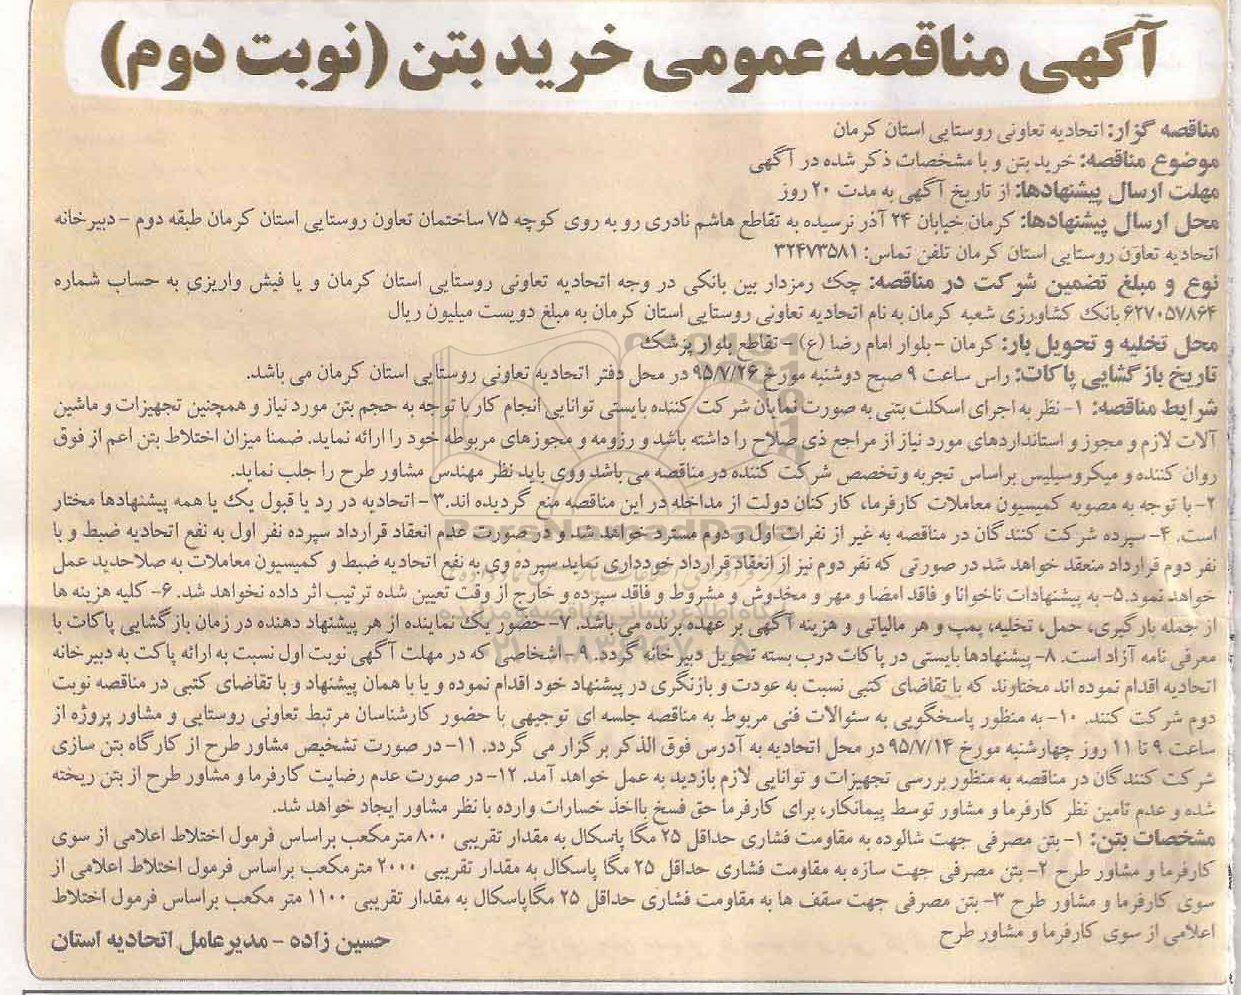 آگهی مناقصه عمومی خرید بتن (نوبت دوم)
مناقصه گزار: اتحادیه تعاونی روستایی استان کرمان
موضوع مناقصه: خرید بتن و با مشخصات ذکر شده در آگهی
مهلت ارسال پیشنهادها: از تاریخ آگهی به مدت ۲۰ روز
محل ارسال پیشنهادها: کرمان خیابان ۲۴ آذر نرسیده به تقاطع هاشم نادری رو به روی کوچه ۷۵ ساختمان تعاون روستایی استان کرمان طبقه دوم - دبیرخانه
اتحادیه تعاون روستایی استان کرمان تلفن تماس: ۳۲۴۷۳۵۸۱
نوع و مبلغ تضمین شرکت در مناقصه: چک رمزدار بین بانکی در وجه اتحادیه تعاونی روستایی استان کرمان و یا فیش واریزی به حساب شماره
۶۲۷۰۵۷۸۶۴ بانک کشاورزی شعبه کرمان به نام اتحادیه تعاونی روستایی استان کرمان به مبلغ دویست میلیون ریال
محل تخلیه و تحویل بار: کرمان - بلوار امام رضا (ع) - تقاطع بلوار پزشک
تاریخ بازگشایی پاکات: راس ساعت ۹ صبح دوشنبه مورخ ۹۵/۷/۲۶ در محل دفتر اتحادیه تعاونی روستایی استان کرمان می باشد.
شرایط مناقصه: ۱- نظر به اجرای اسکلت بتنی به صورت نمایان شرکت کننده بایستی توانایی انجام کار با توجه به حجم بتن مورد نیاز و همچنین تجهیزات و ماشین
آلات لازم و مجوز و استانداردهای مورد نیاز از مراجع ذی صلاح را داشته باشد و رزومه و مجوزهای مربوطه خود را ارائه نماید. ضمنا میزان اختلاط بتن اعم از فوق
روان کننده و میکروسیلیس براساس تجربه و تخصص شرکت کننده در مناقصه می باشد ووی باید نظر مهندس مشاور طرح را جلب نماید.
۲- با توجه به مصوبه کمیسیون معاملات کارفرما، کارکنان دولت از مداخله در این مناقصه منع گردیده اند. ۳- اتحادیه در رد یا قبول یک یا همه پیشنهادها مختار
است. ۴- سپرده شرکت کنندگان در مناقصه به غیر از نفرات اول و دوم مسترد خواهد شد و در صورت عدم انعقاد قرارداد سپرده نفر اول به نفع اتحادیه ضبط و با
نفر دوم قرارداد منعقد خواهد شد در صورتی که نفر دوم نیز از انعقاد قرارداد خودداری نماید سپرده وی به نفع اتحادیه ضبط و کمیسیون معاملات به صلاحدید عمل
خواهد نمود. ۵- به پیشنهادات ناخوانا و فاقد امضا و مهر و مخدوش و مشروط و فاقد سپرده و خارج از وقت تعیین شده ترتیب اثر داده نخواهد شد. ۶- کلیه هزینه ها
از جمله بارگیری، حمل، تخلیه، پمپ و هر مالیاتی و هزینه آگهی بر عهده برنده می باشد. ۷- حضور یک نماینده از هر پیشنهاد دهنده در زمان بازگشایی پاکات با
معرفی نامه آزاد است. ۸- پیشنهادها بایستی در پاکات درب بسته تحویل دبیرخانه گردد. ۹- اشخاصی که در مهلت آگهی نوبت اول نسبت به ارائه پاکت به دبیرخانه
اتحادیه اقدام نموده اند مختارند که با تقاضای کتبی نسبت به عودت و بازنگری در پیشنهاد خود اقدام نموده و یا با همان پیشنهاد و با تقاضای کتبی در مناقصه نوبت
دوم شرکت کنند. ۱۰- به منظور پاسخگویی به سئوالات فنی مربوط به مناقصه جلسه ای توجیهی با حضور کارشناسان مرتبط تعاونی روستایی و مشاور پروژه از
ساعت ۹ تا ۱۱ روز چهارشنبه مورخ ۹۵/۷/۱۴ در محل اتحادیه به آدرس فوق الذکر برگزار می گردد. ۱۱- در صورت تشخیص مشاور طرح از کارگاه بتن سازی
شرکت کنندگان در مناقصه به منظور بررسی تجهیزات و توانایی لازم بازدید به عمل خواهد آمد. ۱۲- در صورت عدم رضایت کارفرما و مشاور طرح از بتن ریخته
شده و عدم تامین نظر کارفرما و مشاور توسط پیمانکار، برای کارفرما حق فسخ بااخذ خسارات وارده با نظر مشاور ایجاد خواهد شد.
مشخصات بتن: ۱- بتن مصرفی جهت شالوده به مقاومت فشاری حداقل ۲۵ مگا پاسکال به مقدار تقریبی ۸۰۰ مترمکعب براساس فرمول اختلاط اعلامی از سوی
کارفرما و مشاور طرح ۲- بتن مصرفی جهت سازه به مقاومت فشاری حداقل ۲۵ مگا پاسکال به مقدار تقریبی ۲۰۰۰ مترمکعب براساس فرمول اختلاط اعلامی از
سوی کارفرما و مشاور طرح ۳- بتن مصرفی جهت سقف ها به مقاومت فشاری حداقل ۲۵ مگاپاسکال به مقدار تقریبی ۱۱۰۰ متر مکعب براساس فرمول اختلاط
اعلامی از سوی کارفرما و مشاور طرح
حسین زاده - مدیرعامل اتحادیه استان
ParsNamadData